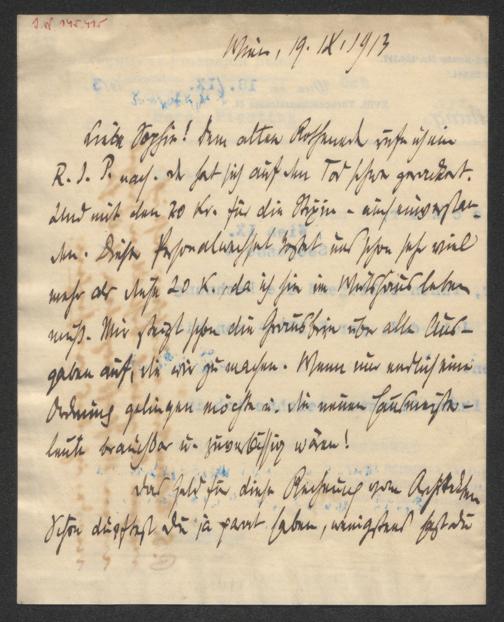 I.N. 145.415
Wien, 19. IX. 1913
Liebe Sophie! Dem alten Rothenade rufe ich ein
R. I. P. nach. Er hat sich auf den Tod schwer gerackert.
Und mit den 20 Kr. für die Pepi – einverstan-
den. Dieser Personalwechsel kostet uns schon sehr viel
mehr als diese 20 K., da ich hier im Wirtshaus leben
muß. Mir steigt schon die Grausbirn über alle Aus-
gaben auf, die wir zu machen. Wenn nur endlich eine
Ordnung gelingen möchte u. die neuen Hausmeister-
leute brauchbar u. zuverlässig wären!
Das Geld für diese Rechnung vom Architekten
Schön dürftest Du ja parat haben, wenigstens hast Du